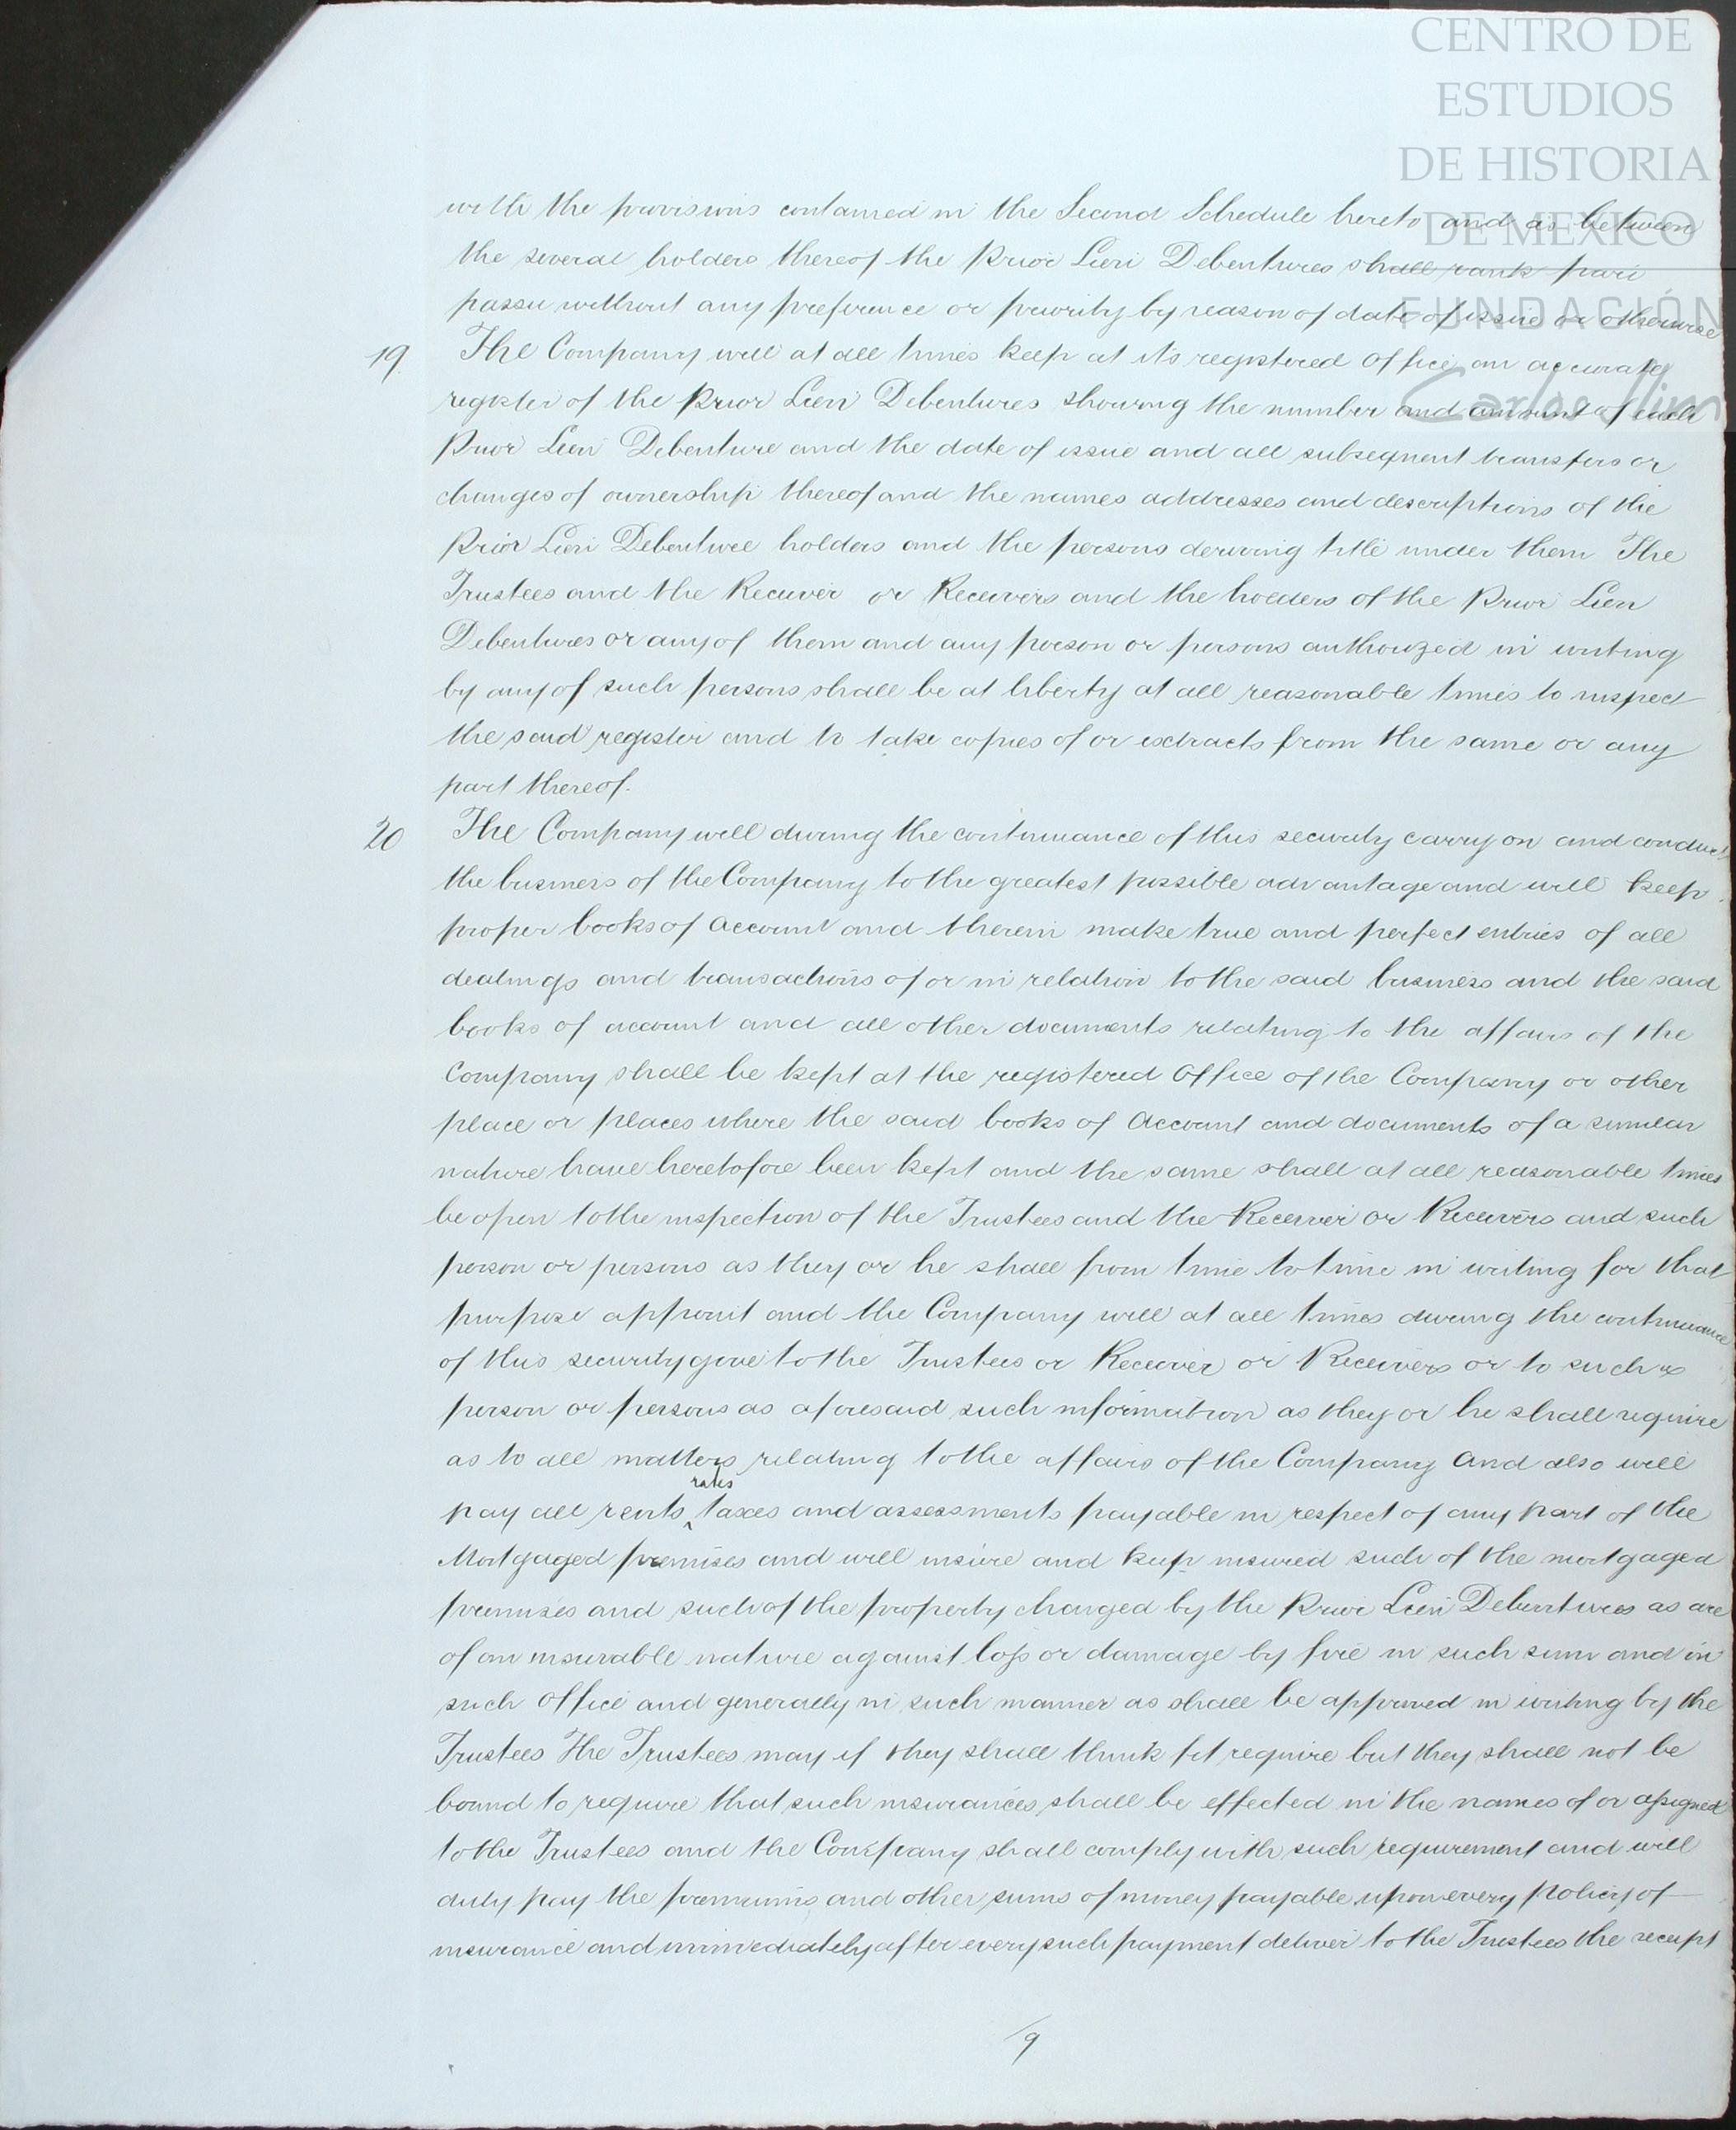 CENTRO DE
ESTUDIOS
DE HISTORIA
DE MEXICO
FUNDACIÓN
Carlos Slim
with the provisions contained in the Second Schedule hereto and as between
the several holders thereof the Prior Lien Debentures shall rank pari
passu without any preference or priority by reason of date of issue or otherwise
19 The Company will at all times keep at its registered Office an accurate
register of the Prior Lien Debentures showing the number and amount of each
Prior Lien Debenture and the date of issue and all subsequent transfers or
changes of ownership thereof and the names addresses and descriptions of the
Prior Lien Debenture holders and the persons deriving title under them The
Trustees and the Receiver or Receivers and the holders of the Prior Lien
Debentures or any of them and any person or persons authorized in writing
by any of such persons shall be at liberty at all reasonable times to inspect
the said register and to take copies of or extracts from the same or any
part thereof.
20 The Company will during the continuance of this security carry on and conduct
the business of the Company to the greatest possible advantage and will keep
proper books of Account and therein make true and perfect entries of all
dealings and transactions of or in relation to the said business and the said
books of account and all other documents relating to the affairs of the
Company shall be kept at the registered Office of the Company or other
place or places where the said books of Account and documents of a similar
nature have heretofore been kept and the same shall at all reasonable times
be open to the inspection of the Trustees and the Receiver or Receivers and such
person or persons as they or he shall from time to time in writing for that
purpose appoint and the Company will at all times during the continuance
of this security give to the Trustees or Receiver or Receivers or to such
person or persons as aforesaid such information as they or he shall require
as to all matters relating to the affairs of the Company And also will
pay all rents rates taxes and assessments payable in respect of any part of the
Mortgaged premises and will insure and keep insured such of the mortgaged
premises and such of the property charged by the Prior Lien Debentures as are
of an insurable nature against loss or damage by fire in such sum and in
such Office and generally in such manner as shall be approved in writing by the
Trustees The Trustees may if they shall think fit require but they shall not be
bound to require that such insurances shall be effected in the names of or assigned
to the Trustees and the Company shall comply with such requirement and will
duly pay the premiums and other sums of money payable upon every Policy of
insurance and immediately after every such payment deliver to the Trustees the receipt
9